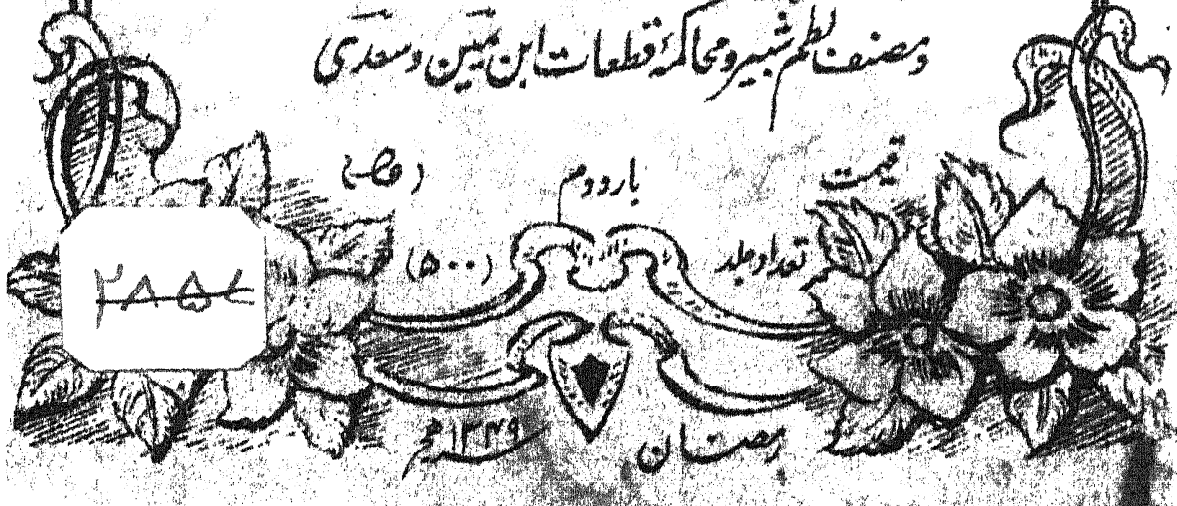 ومصنف نظم شبیر ومحاکمۂ قطعات ابن یمین وسعدی
قیمت بار دوم
تعداد جلد (۵۰۰)
رمضان ۱۳۴۹
۲۸۵۷